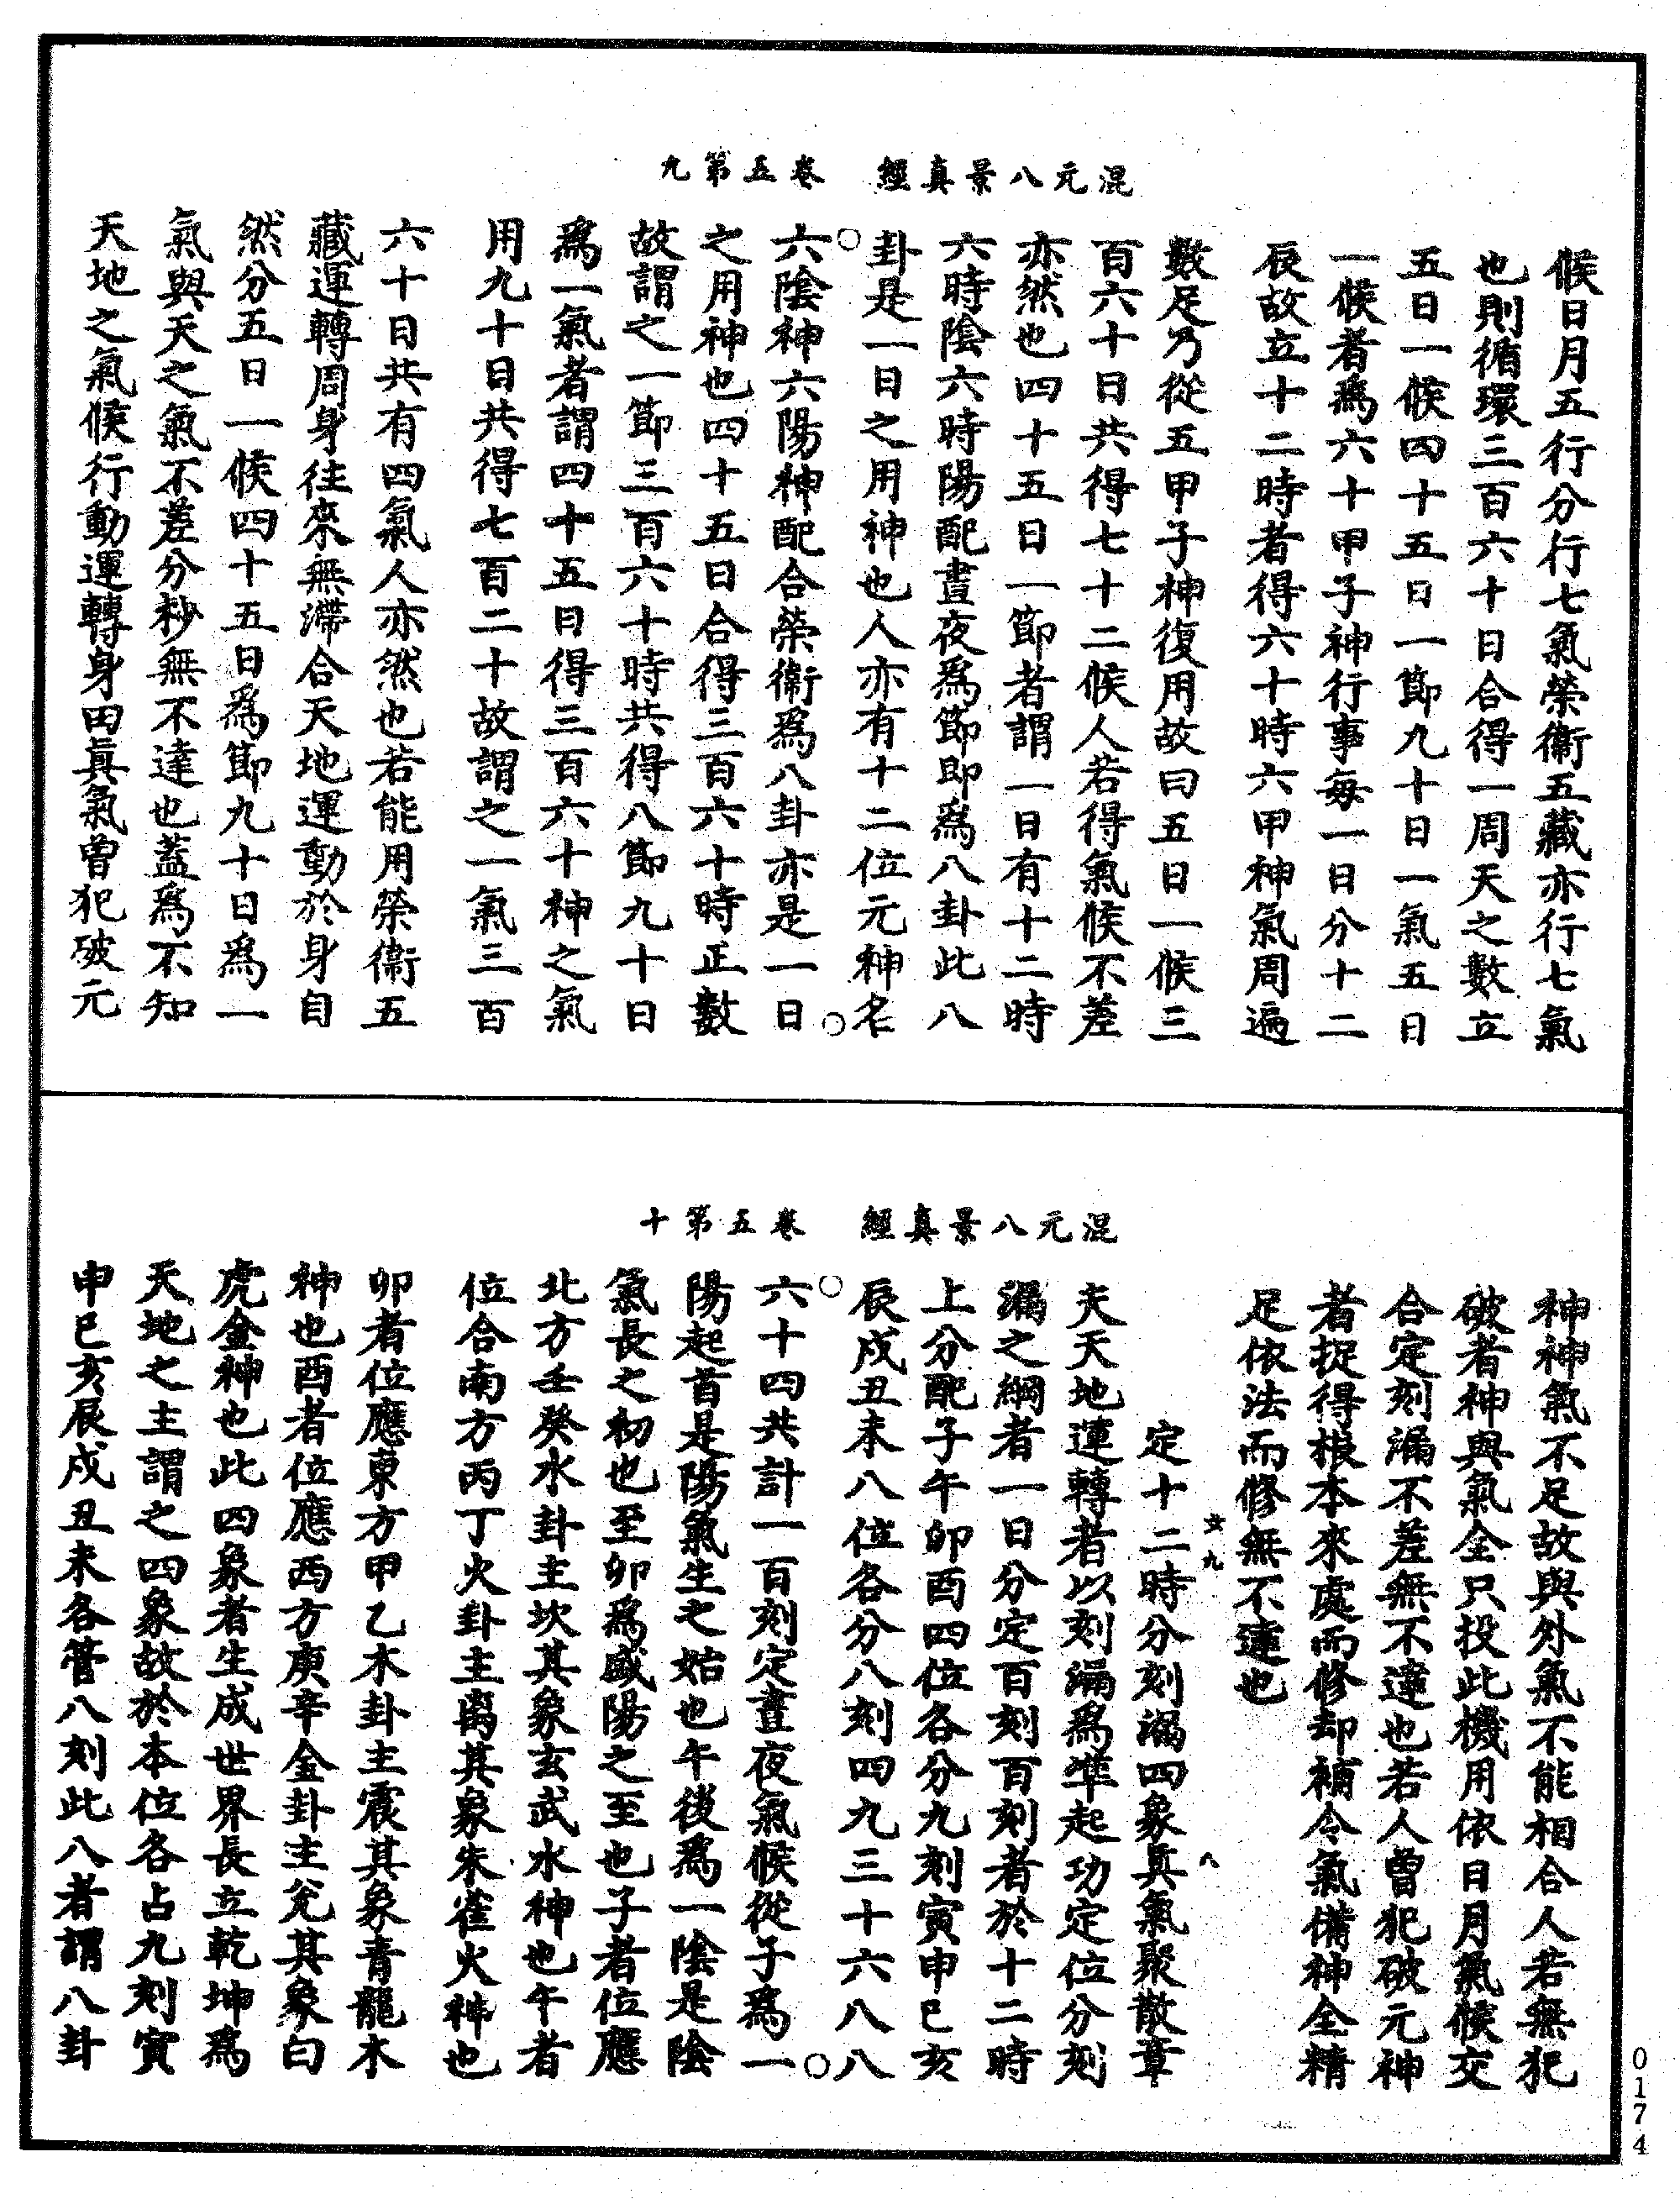 混元八景真經　卷五第九
候日月五行分行七氣榮衞五藏亦行七氣
也則循環三百六十日合得一周天之數立
五日一候四十五日一節九十日一氣五日
一候者爲六十甲子神行事每一日分十二
辰故立十二時者得六十時六甲神氣周遍
數足乃從五甲子神復用故曰五日一候三
百六十日共得七十二候人若得氣候不差
亦然也四十五日一節者謂一日有十二時
六時陰六時陽配晝夜爲節即爲八卦此八
卦是一日之用神也人亦有十二位元神名
六陰神六陽神配合榮衞爲八卦亦是一日
之用神也四十五日合得三百六十時正數
故謂之一節三百六十時共得八節九十日
爲一氣者謂四十五日得三百六十神之氣
用九十日共得七百二十故謂之一氣三百
六十日共有四氣人亦然也若能用榮衞五
藏運轉周身往來無滯合天地運動於身自
然分五日一候四十五日爲節九十日爲一
氣與天之氣不差分杪無不達也蓋爲不知
天地之氣候行動運轉身田眞氣曾犯破元
混元八景真經　卷五第十
神神氣不足故與外氣不能相合人若無犯
破者神與氣全只投此機用依日月氣候交
合定刻漏不差無不達也若人曾犯破元神
者捉得根本來處而修却補令氣備神全精
足依法而修無不達也
女九　八
定十二時分刻漏四象眞氣聚散章
夫天地運轉者以刻漏爲準起功定位分刻
漏之綱者一日分定百刻百刻者於十二時
上分配子午卯酉四位各分九刻寅申巳亥
辰戌丑未八位各分八刻四九三十六八八
六十四共計一百刻定晝夜氣候從子爲一
陽起首是陽氣生之始也午後爲一陰是陰
氣長之初也至卯爲盛陽之至也子者位應
北方壬癸水卦主坎其象玄武水神也午者
位合南方丙丁火卦主离其象朱雀火神也
卯者位應東方甲乙木卦主震其象青龍木
神也酉者位應西方庚辛金卦主兊其象白
虎金神也此四象者生成世界長立乾坤爲
天地之主謂之四象故於本位各占九刻寅
申巳亥辰戌丑未各管八刻此八者謂八卦
0174